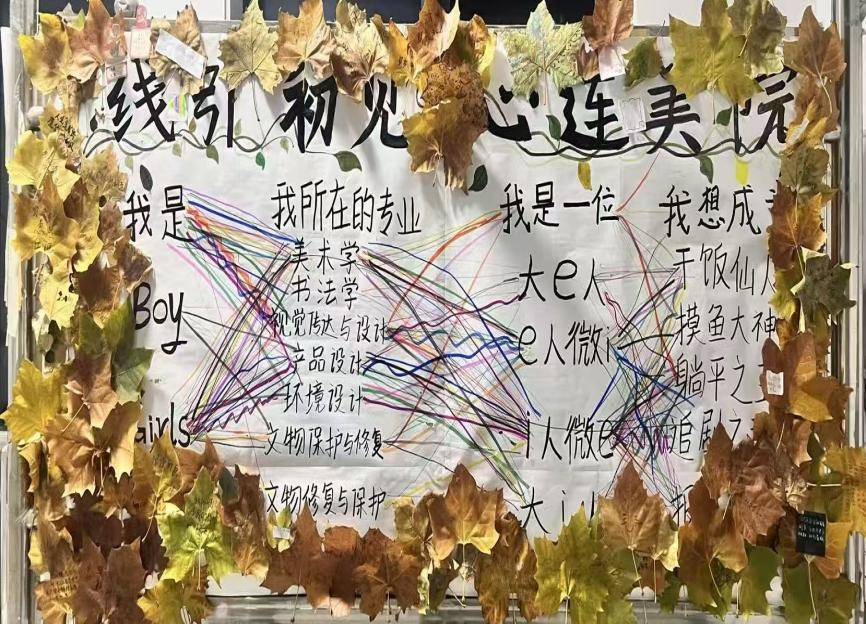 线引初见 心连美院
我是
Boy
Girls
我所在的专业
美术学
书法学
视觉传达与设计
产品设计
环境设计
文物保护与修复
文物修复与保护
我是一位
大e人
e人微i
i人微e
大i人
我想成
干饭仙人
摸鱼大神
躺平之
追剧之